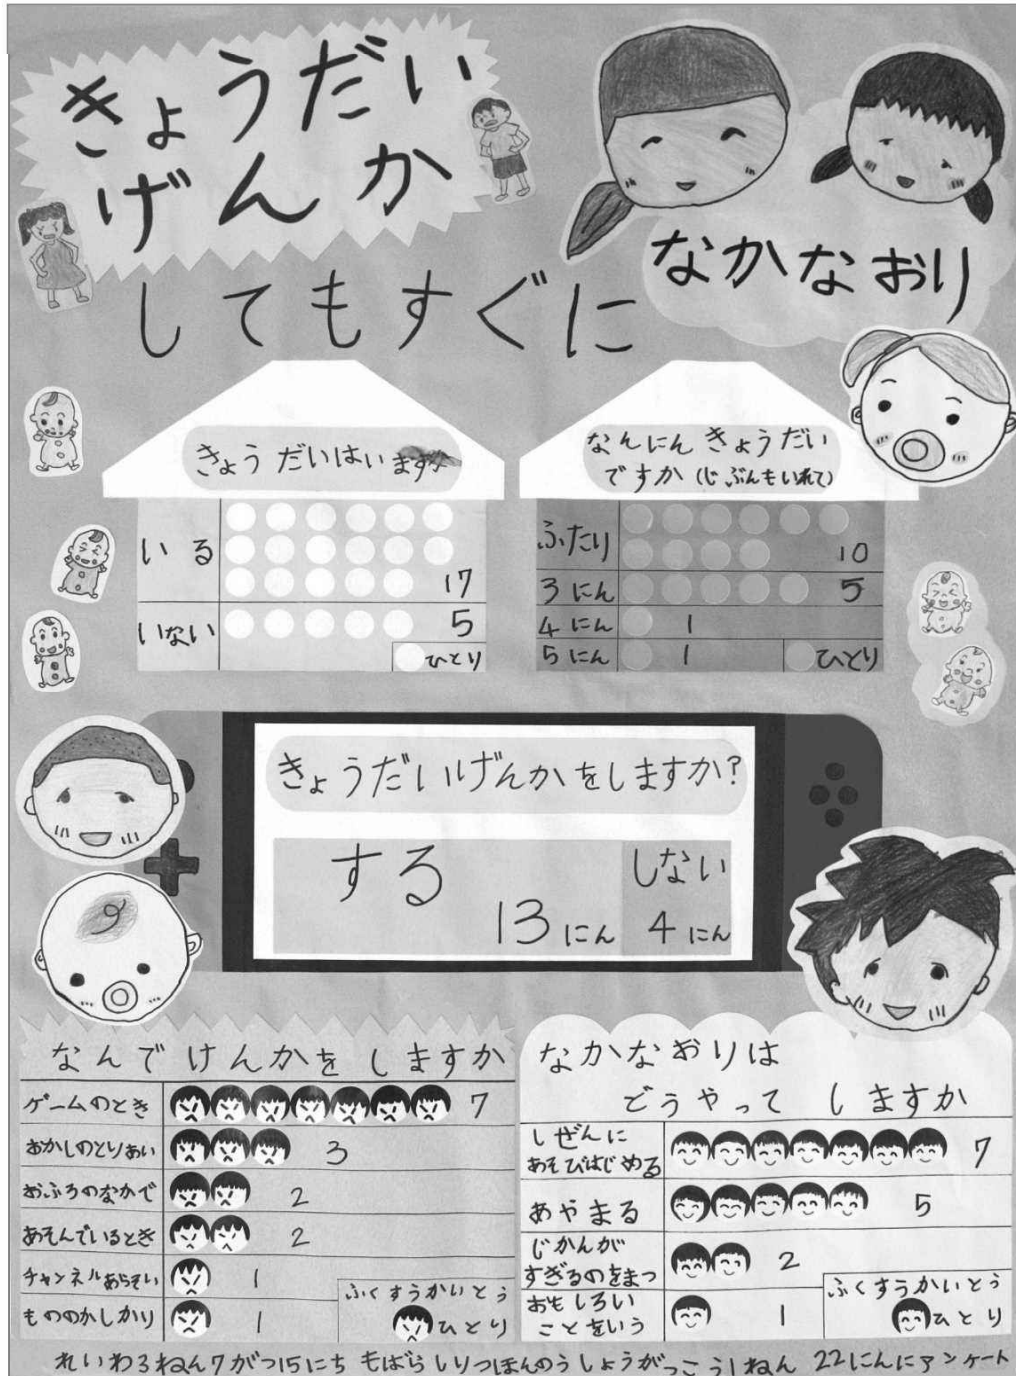 きょうだい
げんか
してもすぐに
なかなおり
きょうだいはいますか
いる 17
いない 5
ひとり
なんにんきょうだい
ですか(じぶんもいれて)
ふたり 10
3にん 5
4にん 1
5にん 1
ひとり
きょうだいげんかをしますか?
する
13にん
しない
4にん
なんでけんかをしますか
ゲームのとき 7
おかしのとりあい 3
おふろのなかで 2
あそんでいるとき 2
チャンネルあらそい 1
もののかしかり 1
ふくすうかいとう
ひとり
なかなおりは
どうやってしますか
しぜんに
あそびはじめる 7
あやまる 5
じかんが
すぎるのをまつ 2
おもしろい
ことをいう 1
ふくすうかいとう
ひとり
れいわ3ねん7がつ15にち もばらしりつほんのうしょうがっこう1ねん 22にんにアンケート